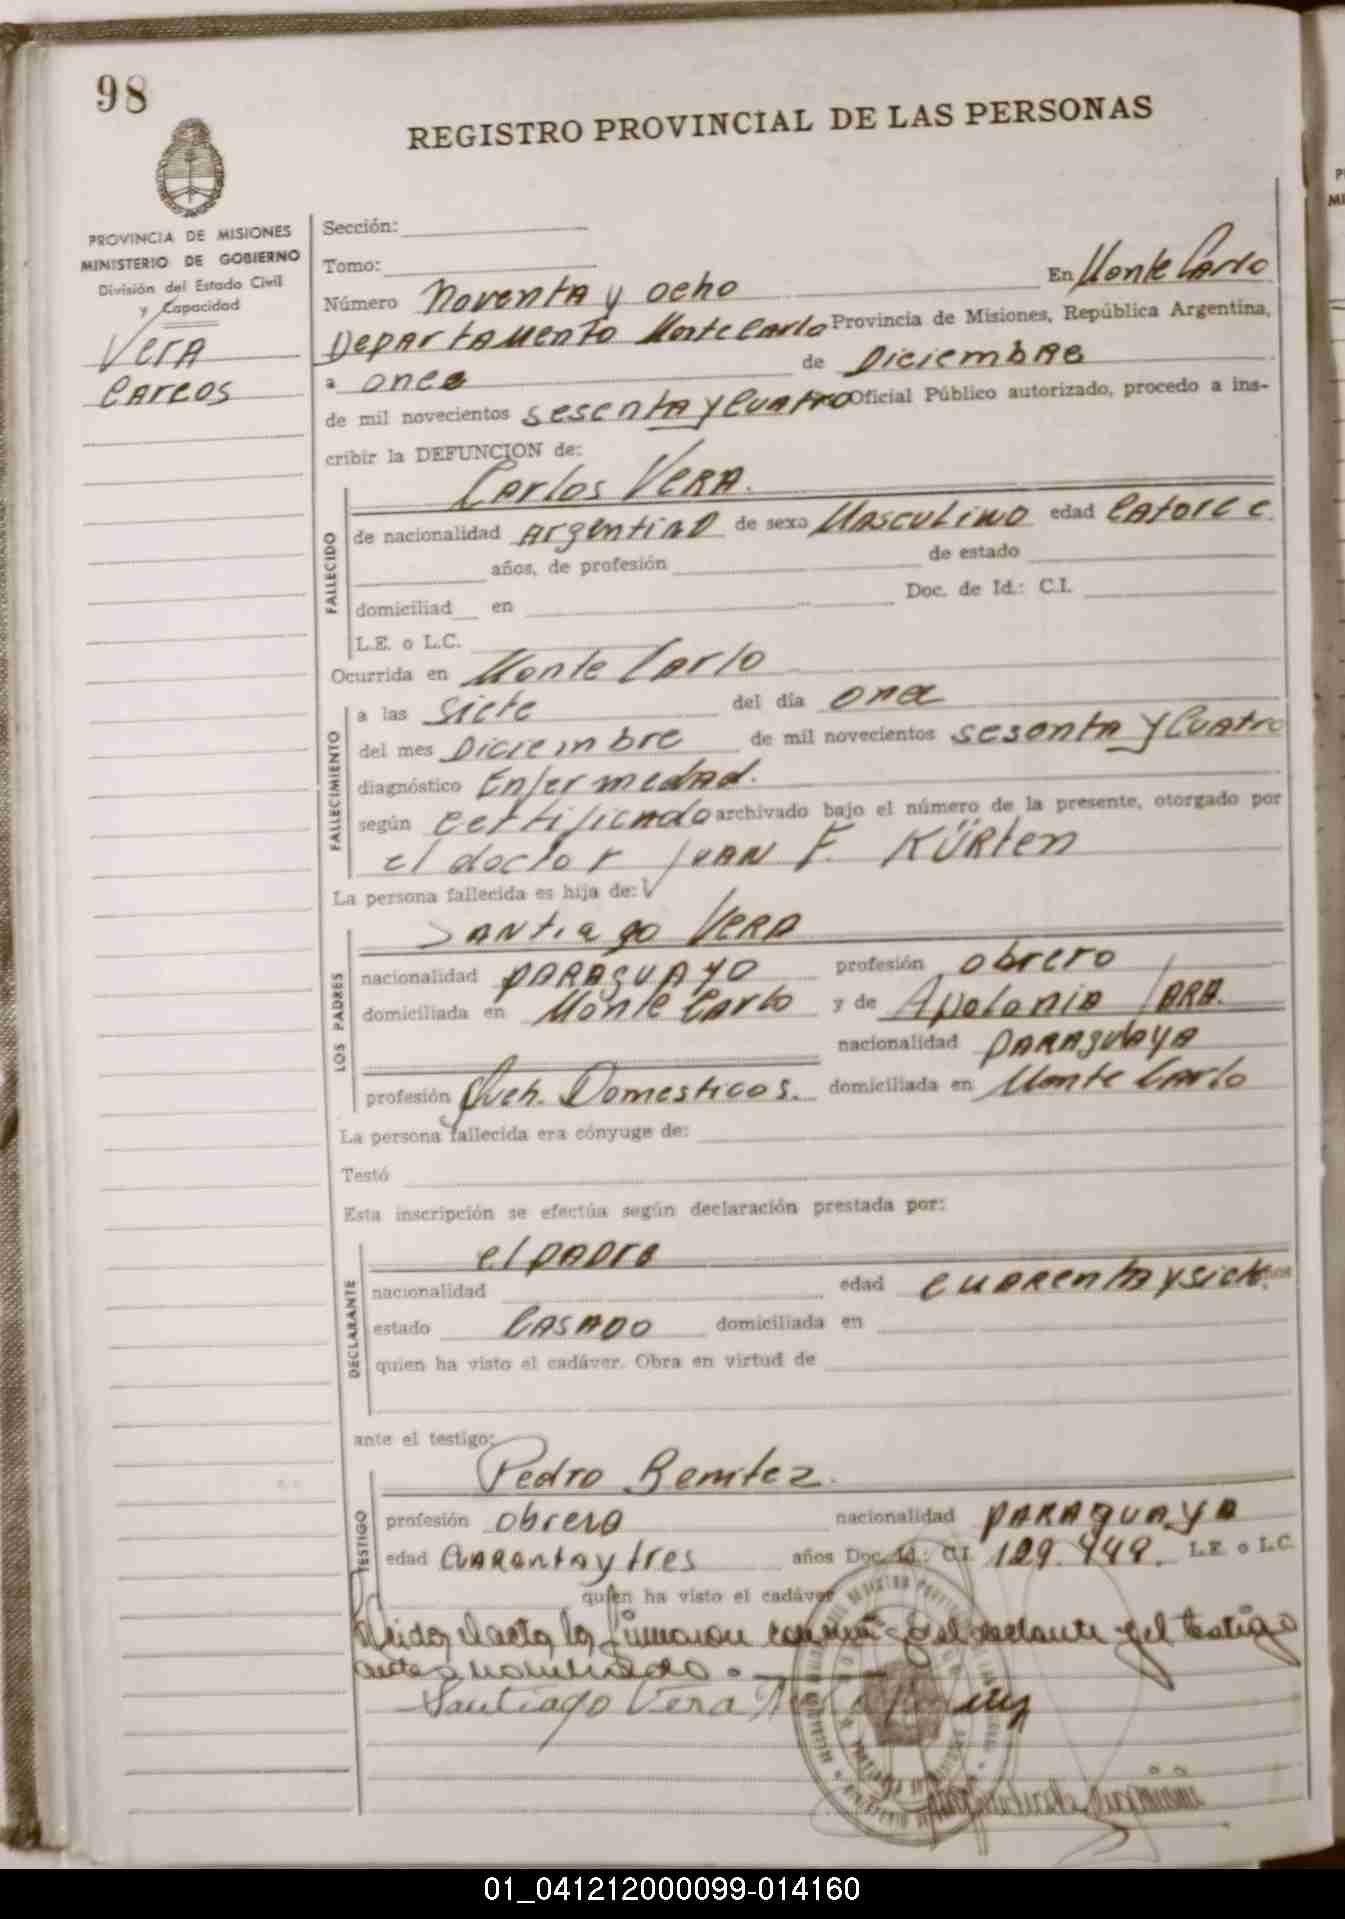 98
REGISTRO PROVINCIAL DE LAS PERSONAS
PROVINCIA DE MISIONES
MINISTERIO DE GOBIERNO
División del Estado Civil
y Capacidad
Vera
Carlos
Sección:
Tomo:
Número Noventa y ocho En Monte Carlo
Departamento Monte Carlo Provincia de Misiones, República Argentina,
a once de Diciembre
de mil novecientos sesenta y cuatro Oficial Público autorizado, procedo a ins-
cribir la DEFUNCION de:
Carlos Vera.
FALLECIDO
de nacionalidad argentino de sexo Masculino edad catorce
años, de profesión de estado
domiciliad en Doc. de Id.: C.I.
L.E. o L.C.
Ocurrida en Monte Carlo
FALLECIMIENTO
a las siete del día once
del mes Diciembre de mil novecientos sesenta y cuatro
diagnóstico Enfermedad.
según certificado archivado bajo el número de la presente, otorgado por
el doctor Juan F. Kürten
La persona fallecida es hija de:
Santiago Vera
LOS PADRES
nacionalidad paraguayo profesión obrero
domiciliada en Monte Carlo y de Apolonia Jara.
nacionalidad paraguaya
profesión Queh. Domesticos. domiciliada en Monte Carlo
La persona fallecida era cónyuge de:
Testó
Esta inscripción se efectúa según declaración prestada por:
el padre
DECLARANTE
nacionalidad edad cuarenta y siete años
estado casado domiciliada en
quien ha visto el cadáver. Obra en virtud de
ante el testigo:
Pedro Benitez.
TESTIGO
profesión obrero nacionalidad paraguaya
edad cuarenta y tres años Doc. Id.: C.I. 129.948. L.E. o L.C.
quien ha visto el cadáver
Leida el acta la firmaron conmigo el declarante y el testigo
antes nombrado.
Santiago Vera
01_041212000099-014160